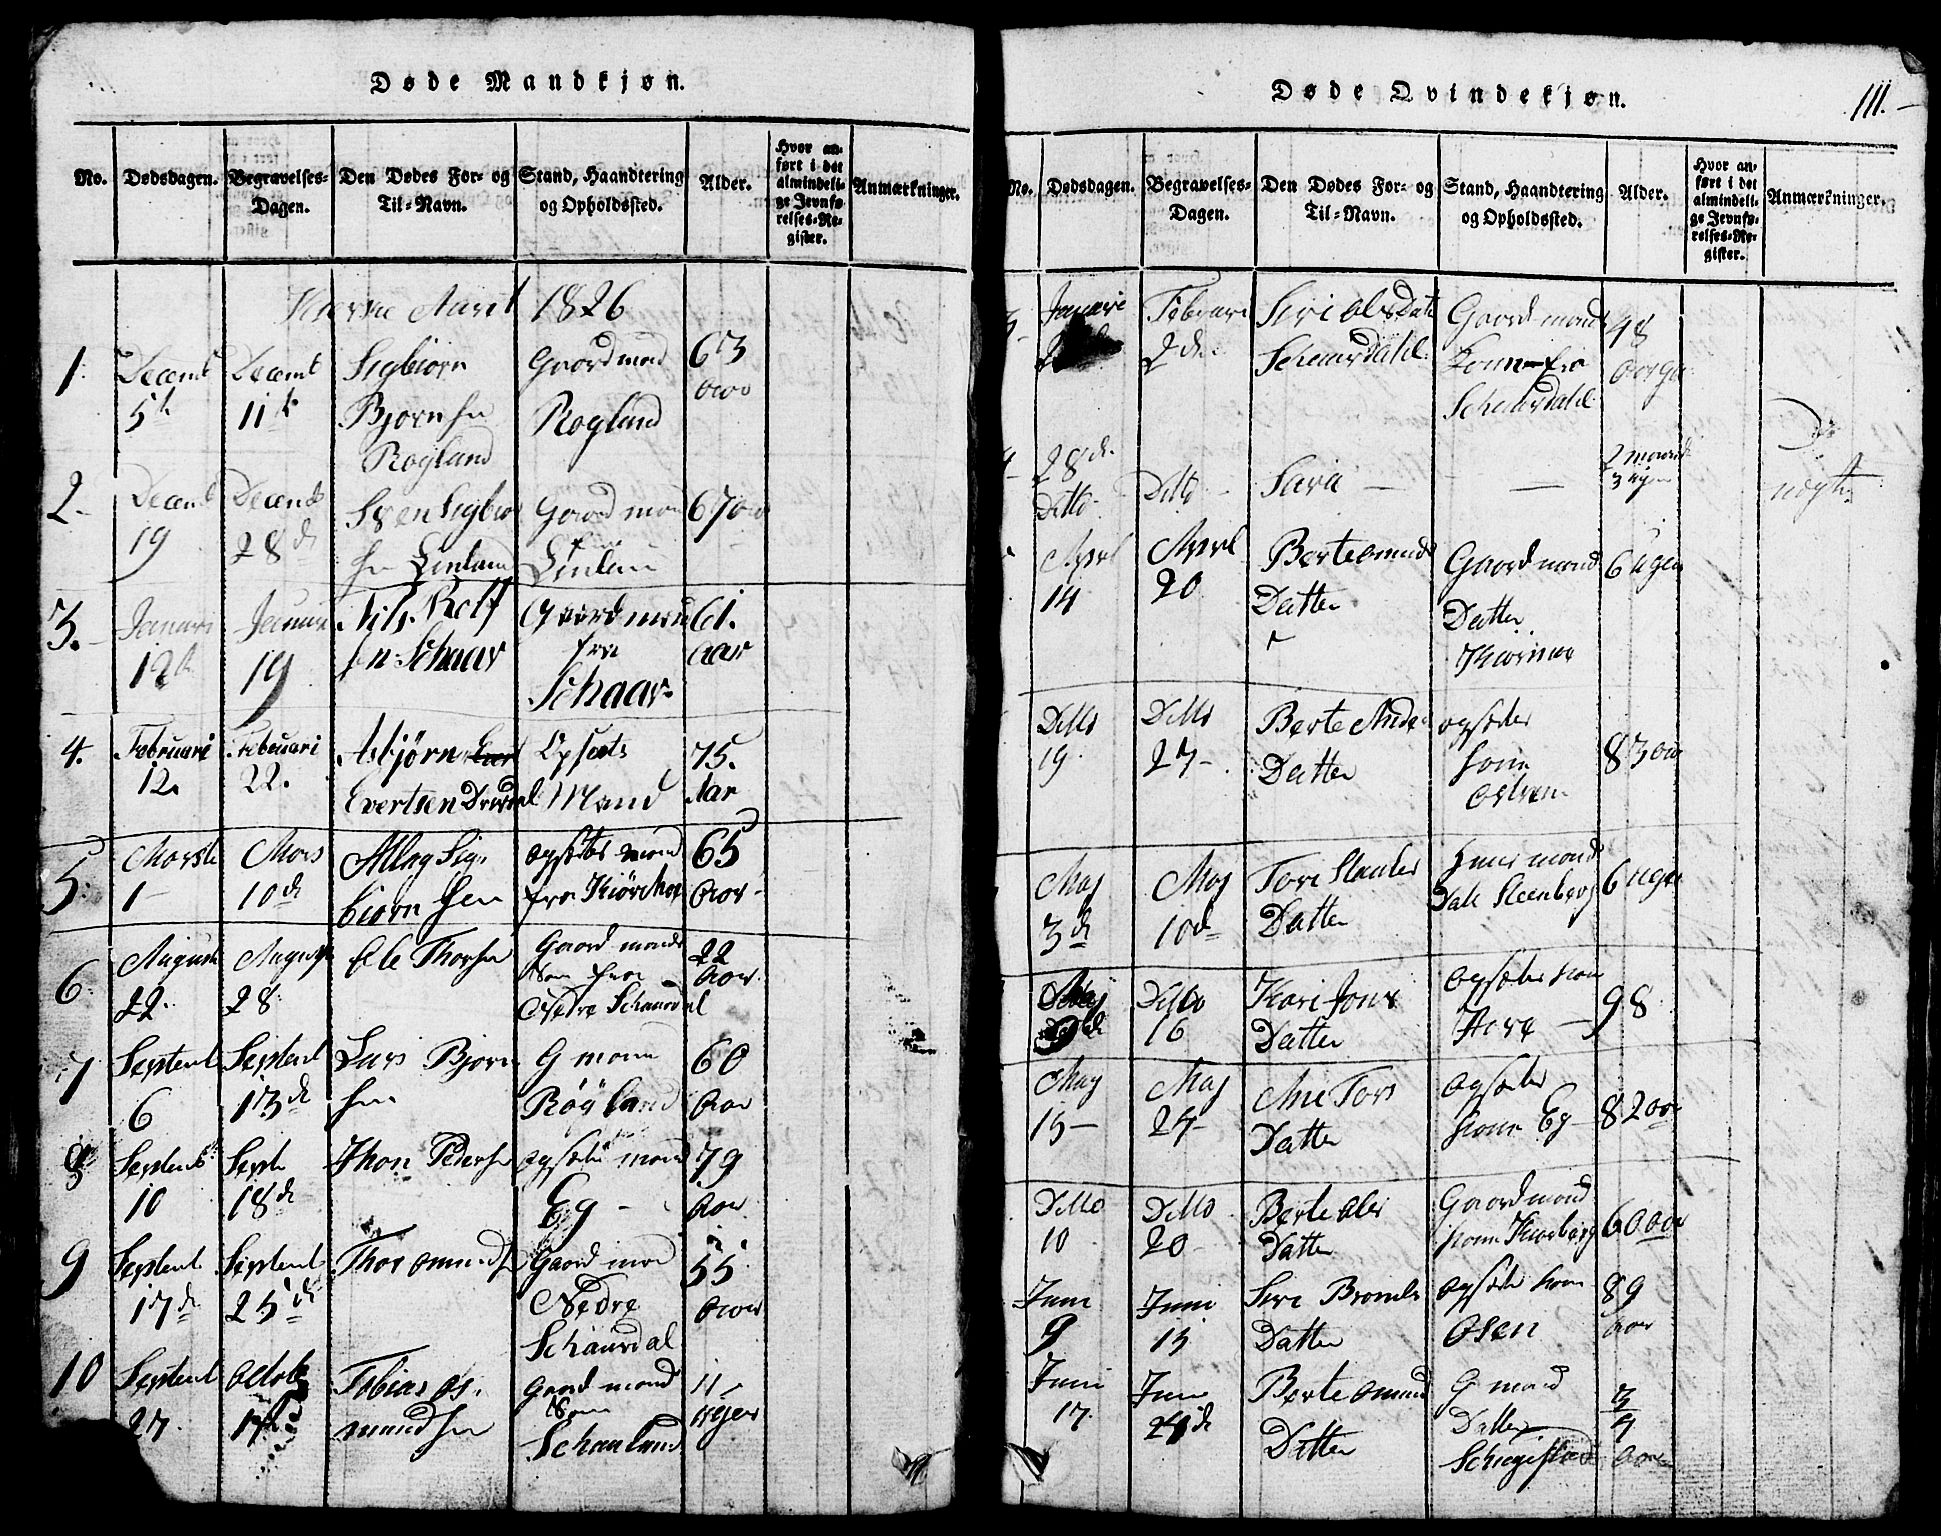 Døde Mandkjøn.
No.
Dødsdagen.
Begravelses-
Dagen.
Den Dødes For- og
Til-Navn.
Stand, Haandtering
og Opholdssted.
Alder.
Hvor an-
ført i det
almindeli-
ge Jevnfø-
relses-Re-
gister.
Anmærkninger.
Aaret 1826
1.
Decemt
5t
Decemt
11t
Sigbiørn
Bjørnsen
Rogland
Gaordmand
Rogland
63
Aar
2.
Decemt
19
Decemt
28de
Sven Sigbiør
sen
Gaordmand
67 aar
3.
Januari
12t
Januari
19
Nils Rolf
sen Schaar
Gaordmand
fra
Schaar
61.
aar
4.
Februari
12.
Februari
22.
Asbjørn
Evertsen
Opsæts
Mand
75.
Aar
5.
Marsti
1
Mars
10de
Atlag Sig-
biørnsen
opsæter mand
fra
65
Aar
6.
August
22.
August
28.
Ole Thorsen
Gaord mands
Søn fra
Nedre Schaardal
22
Aar
7
Septemt
6
Septemt
13de
Lars Bjørn
sen
G mann
Røgland
60
Aar
8
Septemt
10
Septe
18de
Thon Pedersen
opsæter mand
Eg
79
Aar
9
Septemt
17de
Septemt
25de
Thor Omundsen
Gaord man
Nedre
Schaardal
55
Aar
10
Septemt
27
Octob
Tobias Os-
mundsen
Gaord mand
Søn
Schaaland
11
uger
Døde Qvindekjøn.
111.
No.
Dødsdagen.
Begravelses-
Dagen.
Den Dødes For- og
Til-Navn.
Stand, Haandtering
og Opholdssted.
Alder.
Hvor an-
ført i det
almindeli-
ge Jevnfø-
relses-Re-
gister.
Anmærkninger.
3
Januari
Februari
2de
Siri Olsdatt
Schaardahl
Gaord mands
Konne fra
Schaardahl
48
4
28de
Ditto
Ditto
Sara
2 maaned
3 uger
Aprl
14
Aprl
20
Berte Omunds
Datter
Gaord mand
Datter
6 ugen
Ditto
19
Ditto
27
Berte
Datter
opsæter
konn
83 aar
Maj
3de
Maj
10de
Tore
Datter
mand
Steenberg
6 uger
Maj
Ditto
16
Kari Jons
Datter
opsæter kon
98
May
15
Maj
24
Ane Tors
Datter
opsæter
konn Eg
82 aar
Ditto
10
Ditto
20
Berte Oles
Datter
Gaord mand
konn
60 aar
Juni
9
Juni
15
Siri
Datter
opsæter kon
Osen
89
Aar
Juni
17
Juni
24de
Berte Omund
Datter
G mand
Datter
3/4
Aar